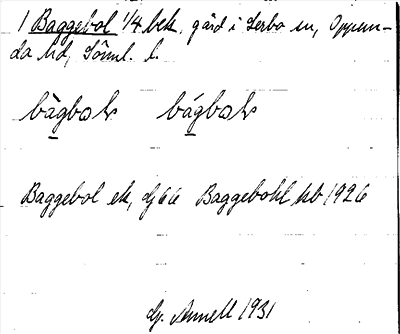 1 Baggebol 1/4 bek. gård i Lerbo sn, Oppun-
da hd, Söml. l.
bàgbols bágbols
Baggebol ek, Gj 66 Baggebohl kb 1926
G. Annell 1931